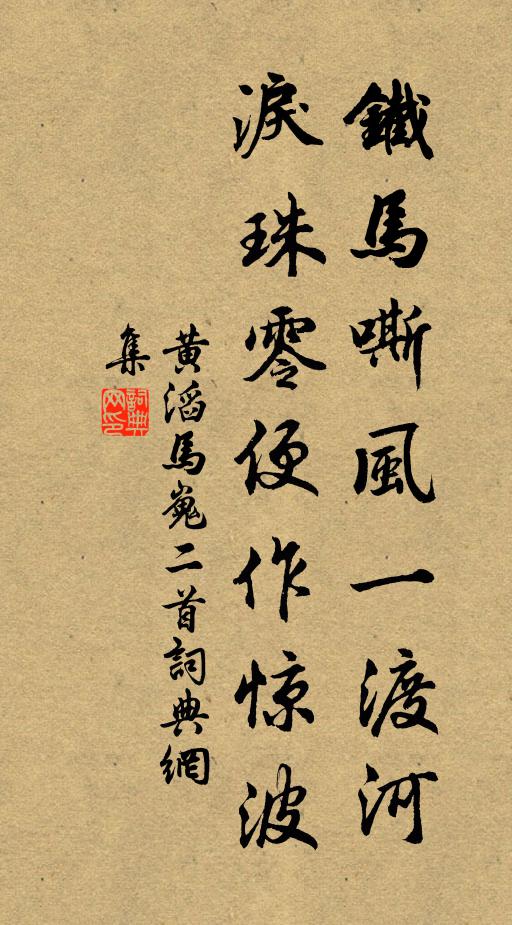 鐵馬嘶風一渡河
淚珠零便作惊波
黄滔馬嵬二首詞典網
集
詞典
网印